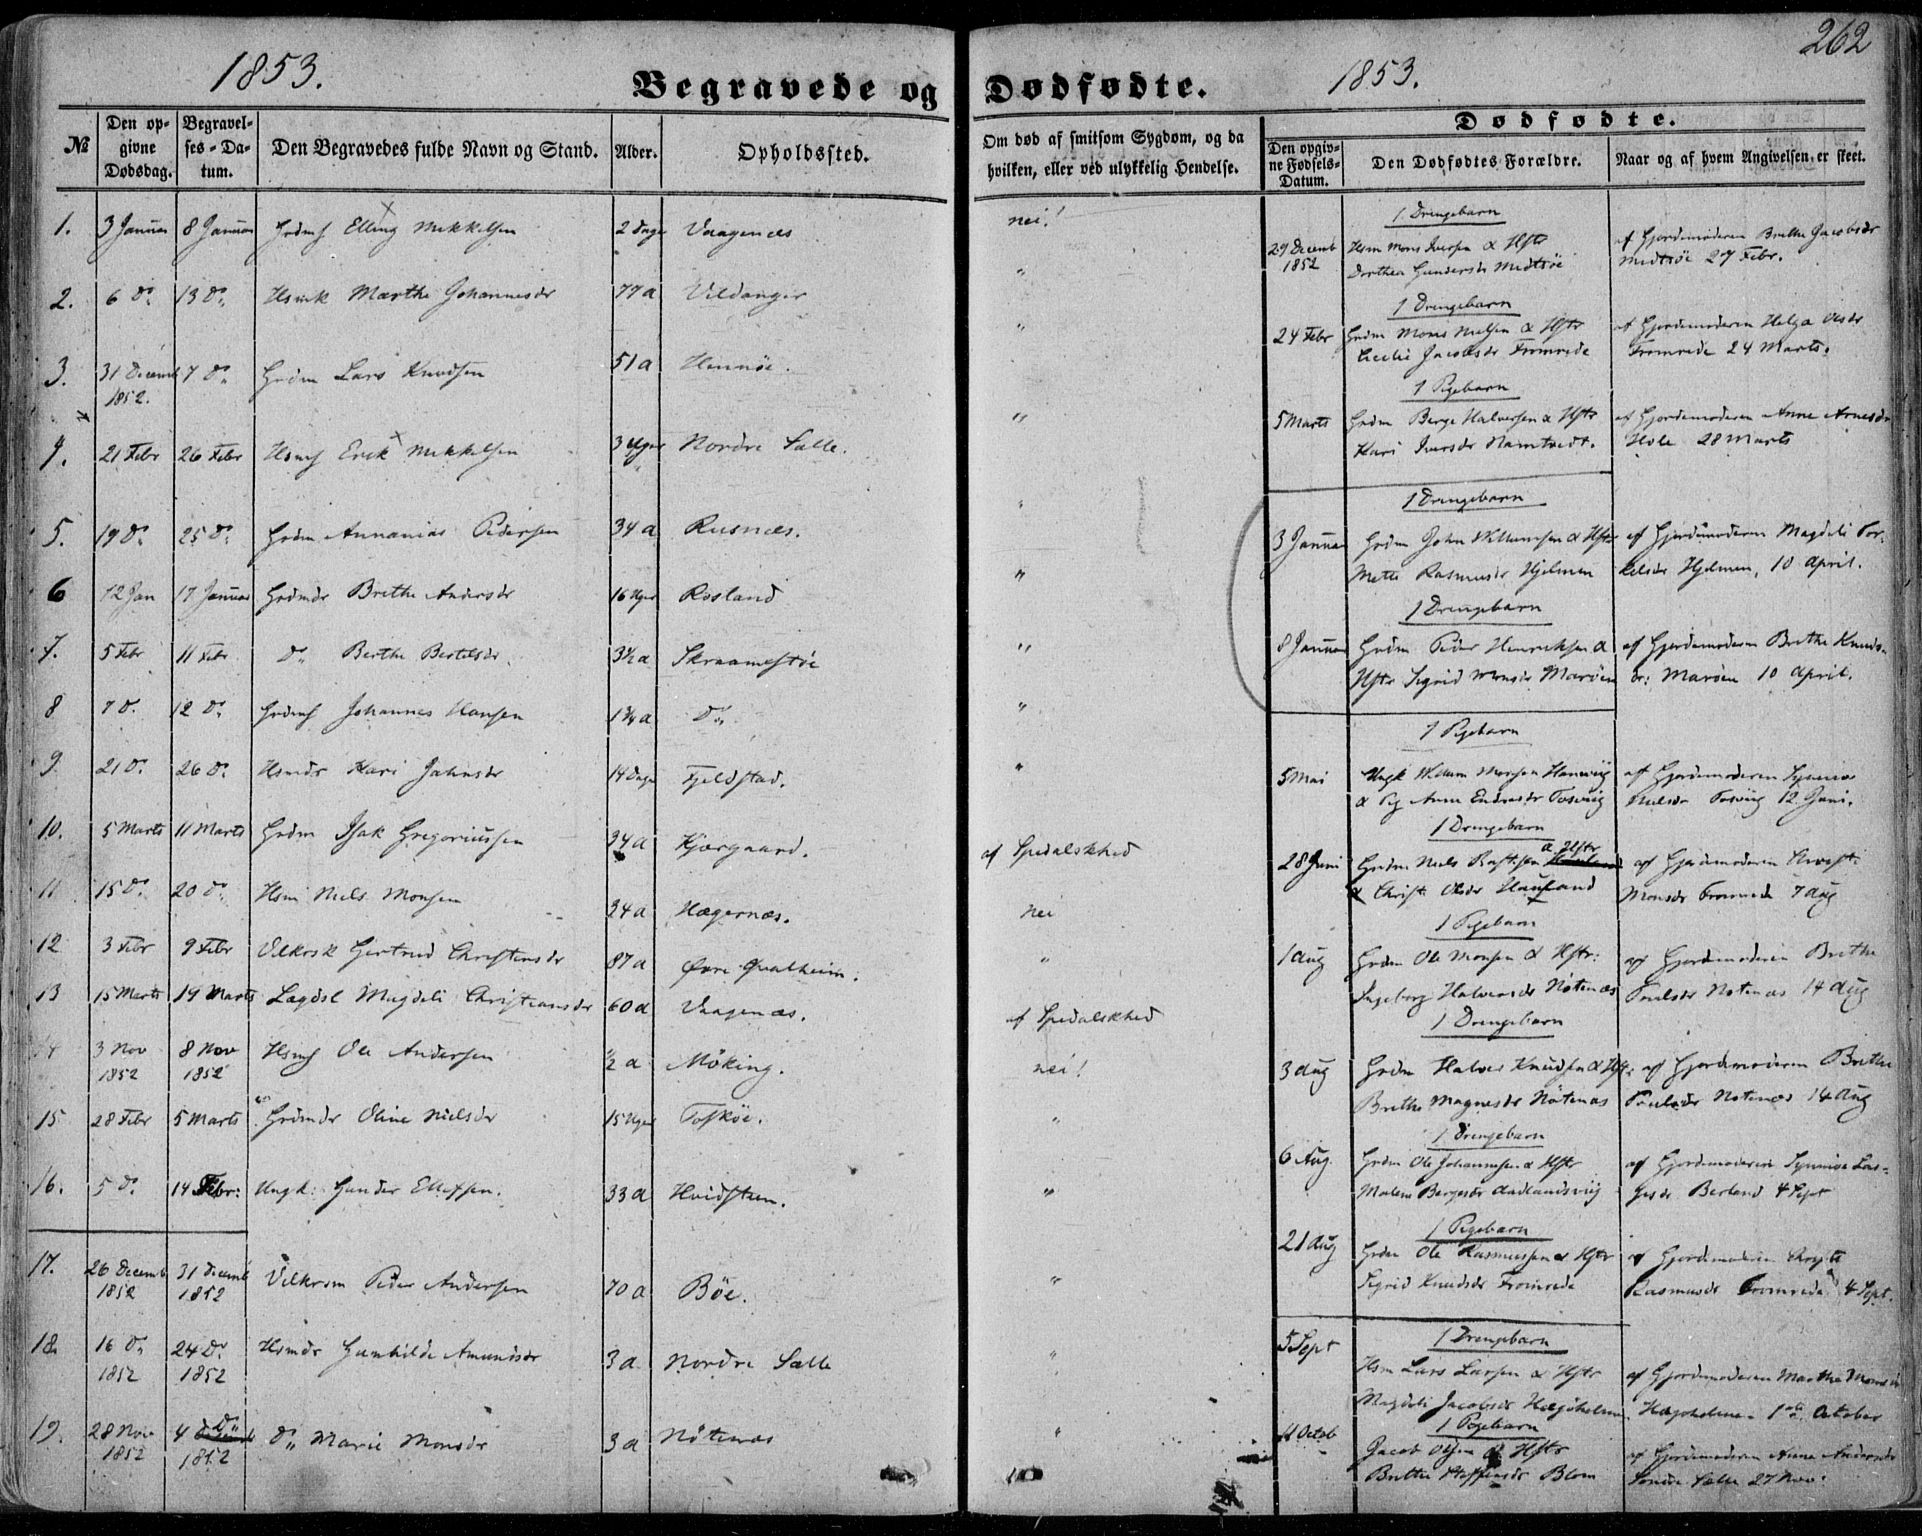 262
1853. Begravede og Dødfødte. 1853.
№ Den opgivne Dødsdag. Begravelses-Datum. Den Begravedes fulde Navn og Stand. Alder. Opholdssted.
Om død af smitsom Sygdom, og da hvilken, eller ved ulykkelig Hendelse.
Dødfødte.
Den opgivne Fødsels-Datum. Den Dødfødtes Forældre. Naar og af hvem Angivelsen er skeet.
1. 3 Januar 8 Januar Elling Mikkelsen 2 Dage Vaagenæs nei!
2. 6 Do 13 Do Marthe Johannesdr 77 a Vildanger "
3. 31 Decemb 1852. 7 Do Grdm Lars Knudsen 51 a Hennøe. "
4. 21 Febr 26 Febr Hsmf Erik Mikkelsen 3 Uger Nordre Sælle. "
5. 19 Do 25 Do Grdm Annanias Pedersen 34 a Rusnæs. "
6 12 Jan 17 Januar Grdmdr Brithe Andersdr 16 Uger Rosland "
7. 5 Febr 11 Febr Do Berthe Bertelsdr. 3½ a Skraamestøe "
8 7 Do 12 Do Johannes Hansen 1¾ a Do "
9. 21 Do 26 Do Hsmdr Kari Johnsdr 14 Dage Fjeldstad. "
10. 5 Marts 11 Marts Grdm Isak Gregoriussen 34 a Kjærgaard. af Spedalskhed
11 15 Do 20 Do Hsm Niels Monsen 24 a Hægernæs. nei
12 3 Febr 9 Febr Gertrud Christensdr 87 a Øvre Qvalheim. "
13 15 Marts 19 Marts Lægdsl Magdeli Christiansdr 60 a Vaagenæs. af Spedalskhed
14 3 Nov 1852 8 Nov 1852 Hsmf Ole Andersen 2 a Möking. nei!
15 28 Febr 5 Marts Grdmdr Oline Nielsdr 15 Uger Toskøe. "
16. 5 Do 14 Febr: Ungk: Gunder Ellefsen. 33 a Hvidsteen. "
17. 26 Decemb 1852 31 Decemb 1852 Peder Andersen 70 a Bøe. "
18. 16 Do 1852 24 Do 1852 Hsmdr Gunhilde Amundsdr 3 a Nordre Sælle "
19. 28 Nov 1852 4 Do 1852 Do Marie Monsdr 3 a Nøtenæs "
1 Drengebarn
29 Decemb 1852 Hsm Mons Iversen & Hstr af Gjordemoderen Brithe Jacobsdr
Dorthea Gundersdr Midtsøe Midtsøe 27 Febr.
1 Drengebarn
24 Febr Grdm Mons Nielsen & Hstr af Gjordemoderen Helga Olsdr
Cecilie Jacobsdr Fromrede Fromrede 24 Marts.
1 Pigebarn
5 Marts Grdm Berge Halversen & Hstr af Gjordemoderen Anne Arnesdr
Kari Iversdr Namtvedt. Hole 28 Marts
1 Drengebarn
3 Januar Grdm John Willumsen & Hstr af Gjordemoderen Magdeli Tor-
Mette Rasmusdr Hjelmen kelsdr Hjelmen, 10 April.
1 Drengebarn
8 Januar Grdm Peder Henriksen & af Gjordemoderen Brithe Knuds-
Hstr Sigrid Monsdr Marøen dr: Marøen 10 April.
1 Pigebarn
5 Mai Ungk Willum Monsen af Gjordemoderen
& Pig Anne Endresdr Tosvig Nielsdr Tosvig 12 Juni.
1 Drengebarn
28 Juni Grdm Niels & Hstr af Gjordemoderen
& Christi Olsdr Hauland Monsdr Fromrede 7 Aug
1 Pigebarn
1 Aug Grdm Ole Monsen & Hstr: af Gjordemoderen Brithe
Ingeborg Halversdr Nøtenæs Poulsdr Nøtenæs 14 Aug
1 Drengebarn
3 Aug Grdm Halver Knudsen & Hstr: af Gjordemoderen Brithe
Brithe Magnesdr Nøtenæs Poulsdr Nøtenæs 14 Aug
1 Drengebarn
6 Aug. Grdm Ole Johannesen & Hstr af Gjordemoderen Synneve
Malene Bergesdr Aadlandsvig Berland 4 Sept
1 Pigebarn
21 Aug Grdm Ole Rasmussen & Hstr af Gjordemoderen
Sigrid Knudsdr Fromrede Rasmusdr Fromrede 4 Sept.
1 Drengebarn
5 Sept Hsm Lars Larsen & Hstr af Gjordemoderen Marthe Monsdr
Magdeli Jacobsdr Hægøholmen. Hægøholmen 1ste October
1 Pigebarn
Octob Jacob Olsen & Hstr af Gjordemoderen Anne Andersdr
Brithe Steffensdr Blom Søndre Sælle 27 Nov: